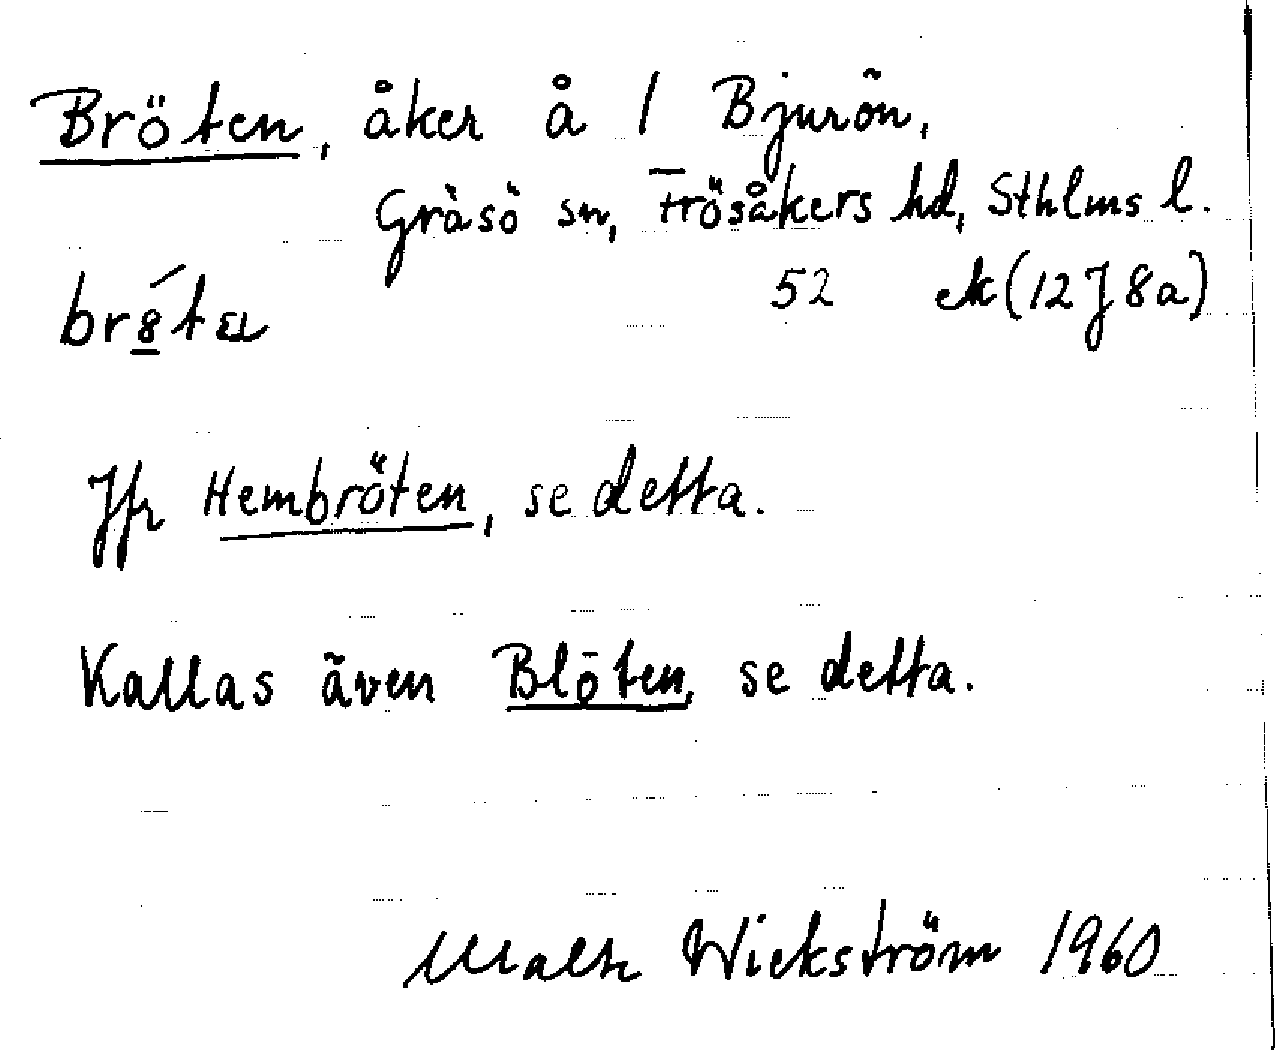 Bröten, åker å 1 Bjurön,
Gräsö sn, Frösåkers hd, Sthlms l.
52 ek (12J8a)
Jfr Hembröten, se detta.
Kallas även Blöten, se detta.
Malte Wickström 1960